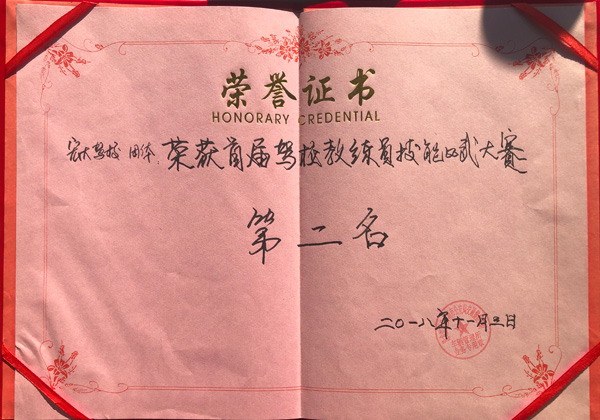 荣誉证书
HONORARY CREDENTIAL
宏大驾校 团体: 荣获首届驾校教练员技能比武大赛
第二名
二〇一八年十一月三日